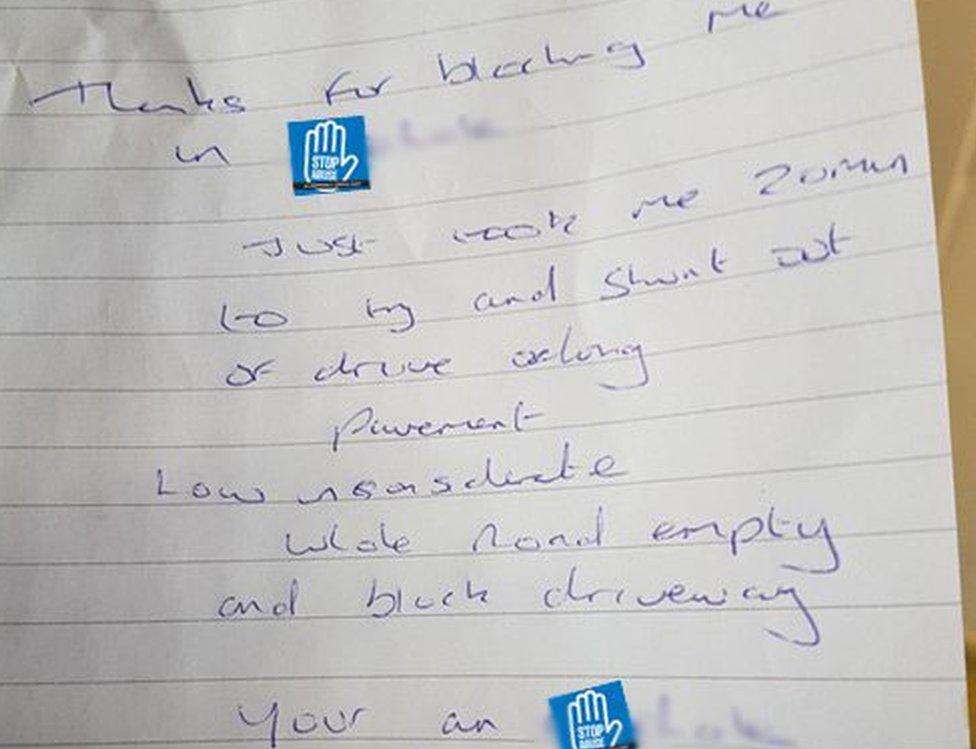 Thanks for blocking me
in
STOP
ABUSE
Just took me 20min
to try and shunt out
or drive along
pavement
How inconsiderate
whole road empty
and block driveway
Your an
STOP
ABUSE